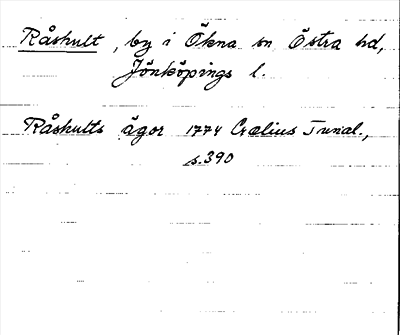 Råshult, by i Ökna sn Östra hd,
Jönköpings l.
Råshults ägor 1774 Crælius Tunal.,
s. 390